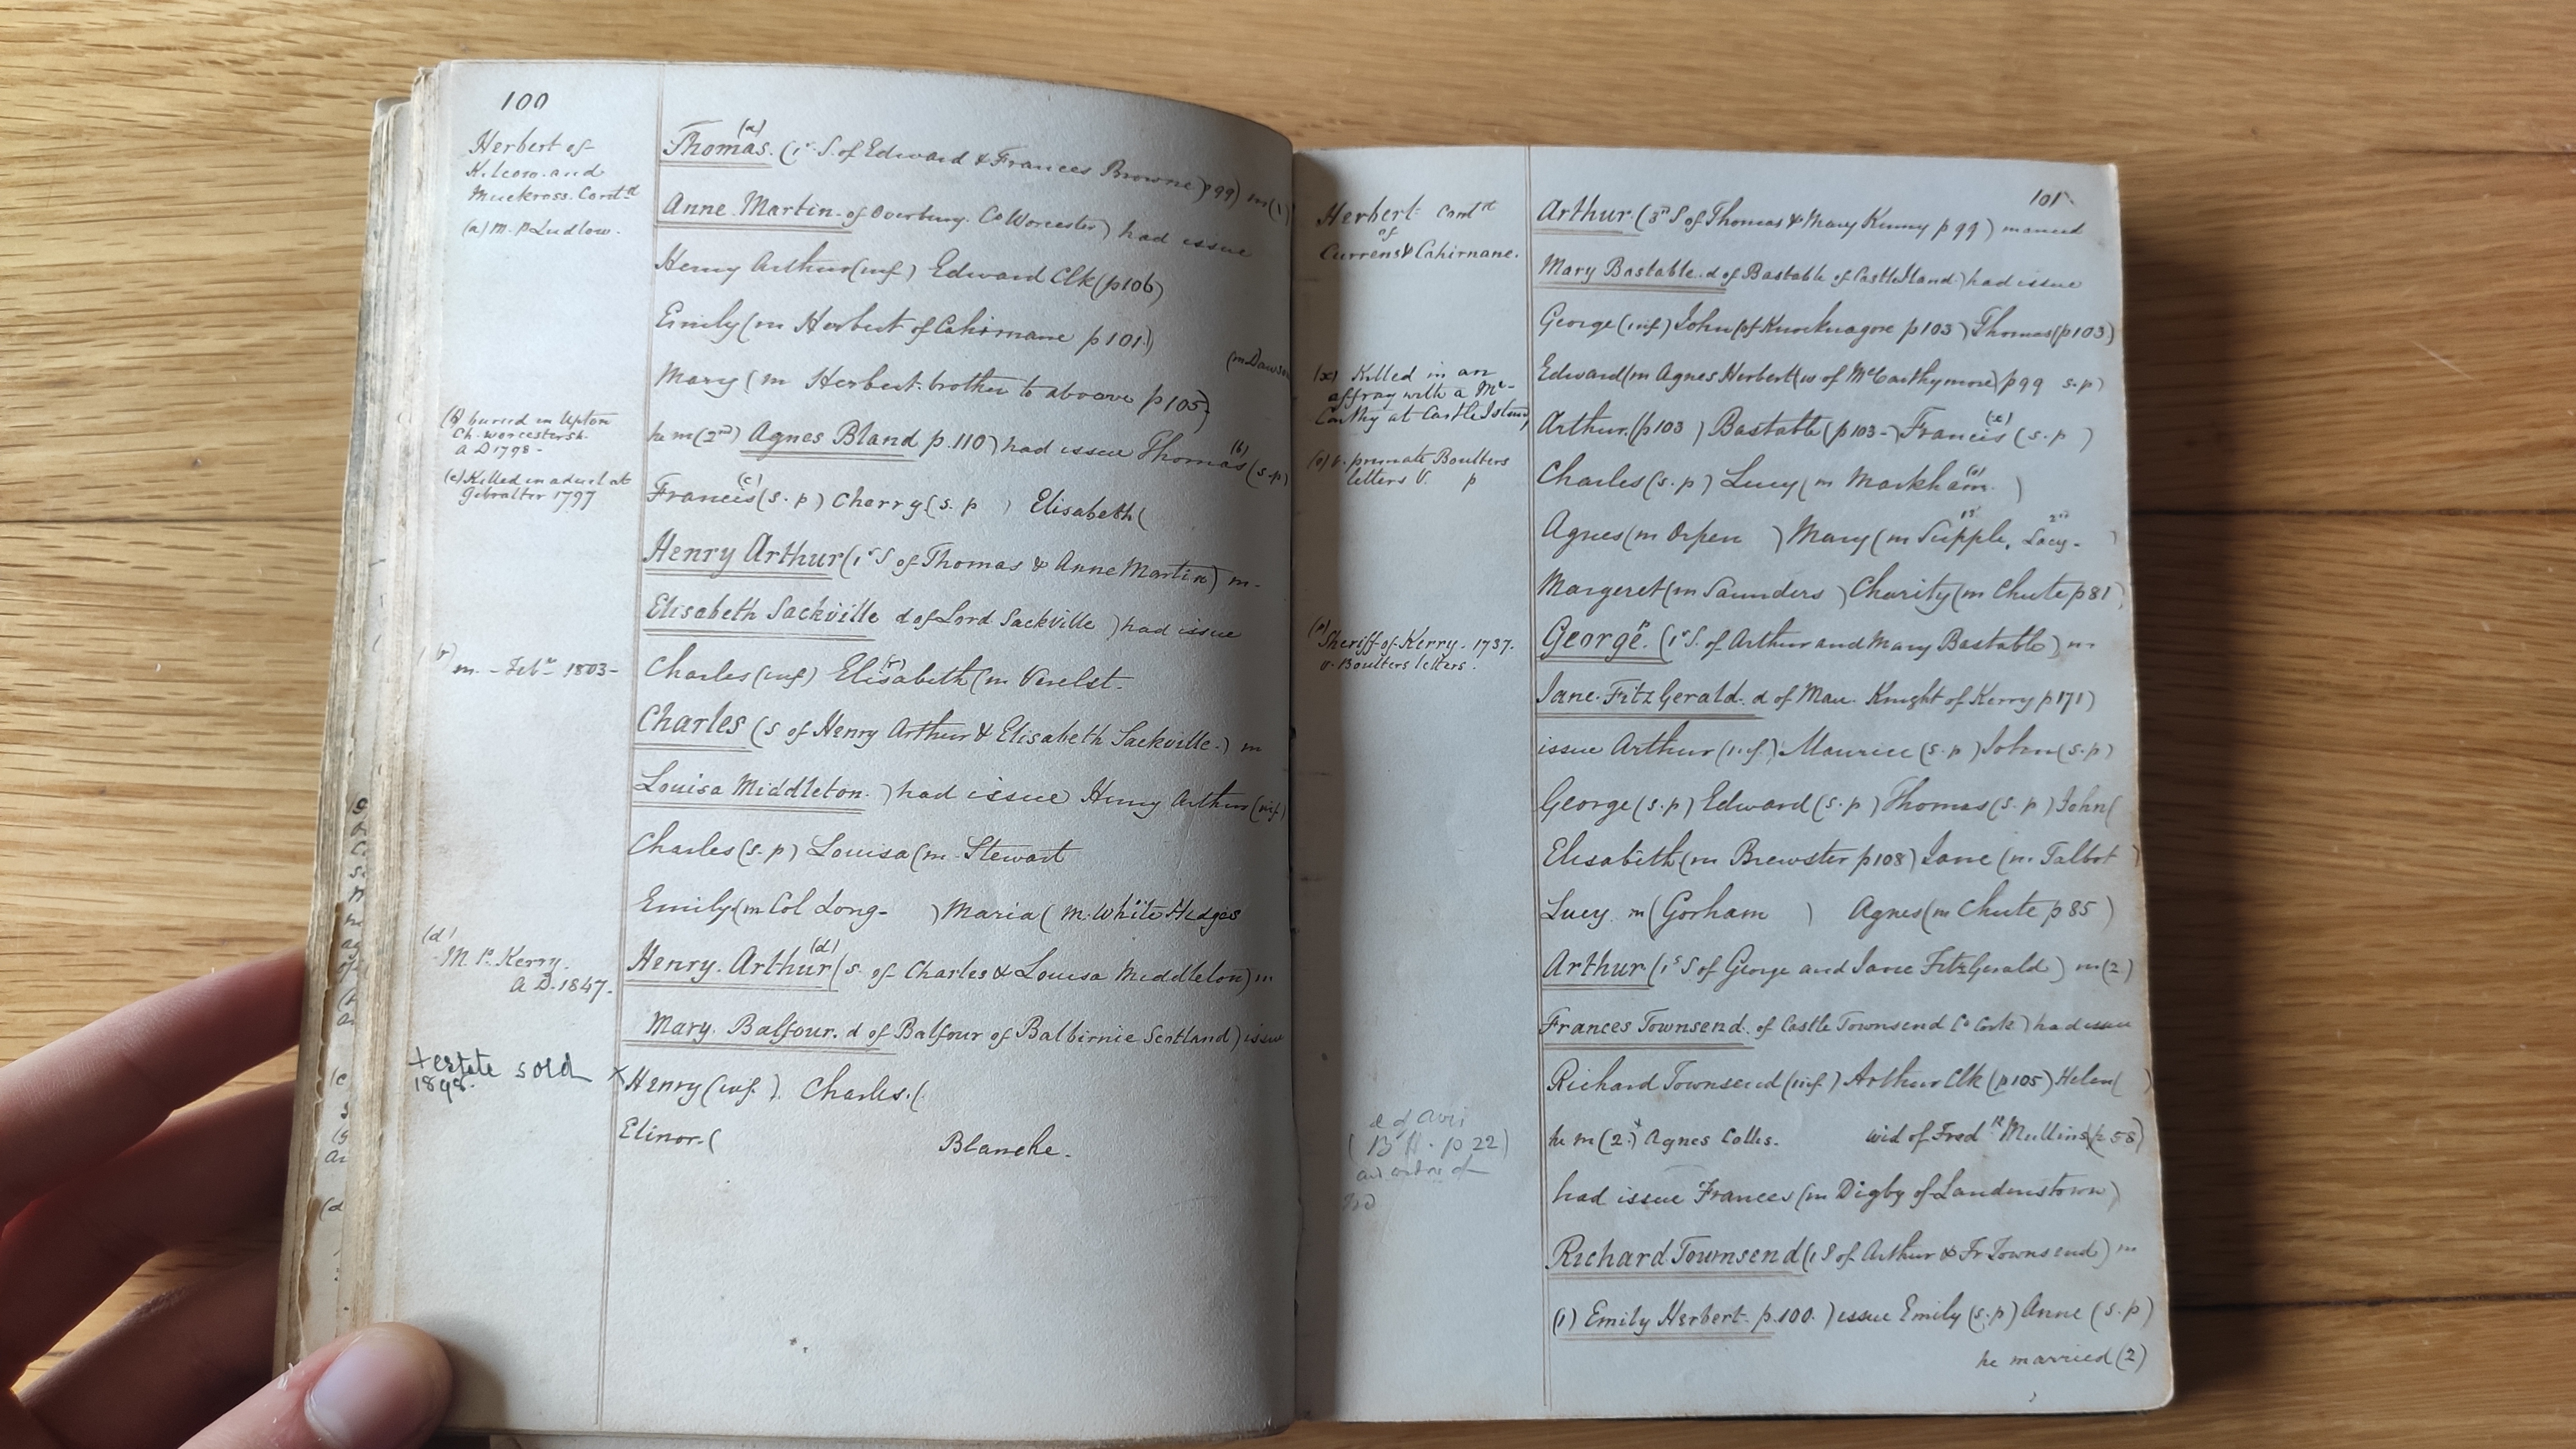 100
Herbert of
Kilcow. and
Muckross. Contd
(a) M. P Ludlow.
(b) buried in Upton
Ch. Worcestersh.
A D 1798 -
(c) Killed in a duel at
Gibralter 1797
(r) m. - Feby 1803 -
(d)
M. P. Kerry.
A D. 1847.
+ estate sold
1898.
(a)
Thomas. (1st S. of Edward & Frances Browne) p 99) m (1)
Anne Martin. of Overbury. Co Worcester) had issue
Henry Arthur (inf) Edward Clk (p 106)
Emily (m Herbert of Cahirnane p 101)
(m Dawson
Mary (m Herbert. brother to aboove p 105)
he m (2nd) Agnes Bland p. 110) had issue Thomas (b) (s.p)
Francis (c) (s. p) Cherry (s. p ) Elisabeth (
Henry Arthur (1st S of Thomas & Anne Martin) m -
Elisabeth Sackville d of Lord Sackville ) had issue
Charles (inf) Elisabeth (r) (m Verelst.
Charles (s of Henry Arthur & Elisabeth Sackville.) m
Louisa Middleton. ) had issue Henry Arthur (inf)
Charles (s. p) Louisa (m. Stewart
Emily (m Col Long- ) Maria ( m. White Hedges
Henry. Arthur (d) (s. of Charles & Louisa Middleton) m
Mary. Balfour. d of Balfour of Balbirnie Scotland) issue
x Henry (inf. ). Charles. (
Elinor. ( Blanche.
101
Herbert Contd
of
Currens & Cahirnane.
(x) Killed in an
affray with a Mc-
Carthy at Castle Island,
(o) v. primate Boulters
letters V. p
(n)
Sheriff of Kerry. 1737.
v. Boulters letters.
(B H. p 22)
Arthur. (3rd S of Thomas & Mary Kenny p 99) married
Mary Bastable. d of Bastable of CastleIsland) had issue
George (inf) John (of Knocknagore p 103) Thomas (p 103)
Edward (m Agnes Herbert (w of McCarthymore) p 99 s. p)
Arthur. (p 103 ) Bastable (p 103-) Francis (x) (s. p )
Charles (s. p) Lucy (m Markham (o). )
Agnes (m Orpen ) Mary (m 1st Supple, 2nd Lacy- )
Margeret (m Saunders ) Charity (m Chute p 81)
George. (n) (1st S. of Arthur and Mary Bastable) m
Jane. FitzGerald. d of Mau. Knight of Kerry p 171)
issue Arthur (inf.) Maurice (s. p) John (s. p)
George (s. p) Edward (s. p) Thomas (s. p) John (
Elisabeth (m Brewster p 108) Jane (m. Talbot )
Lucy m (Gorham ) Agnes (m Chute p 85 )
Arthur (1st S of George and Jane FitzGerald ) m (2)
Frances Townsend. of Castle Townsend Co Cork) had issue
Richard Townsend (inf) Arthur Clk (p 105) Helen ( )
he m (2.) Agnes Colles. wid of Fredk Mullins (p 58)
had issue Frances (m Digby of Landenstown)
Richard. Townsend (1 S of Arthur & Fr Townsend) m
(1) Emily Herbert. p. 100. ) issue Emily (s. p) Anne (s. p)
he married (2)